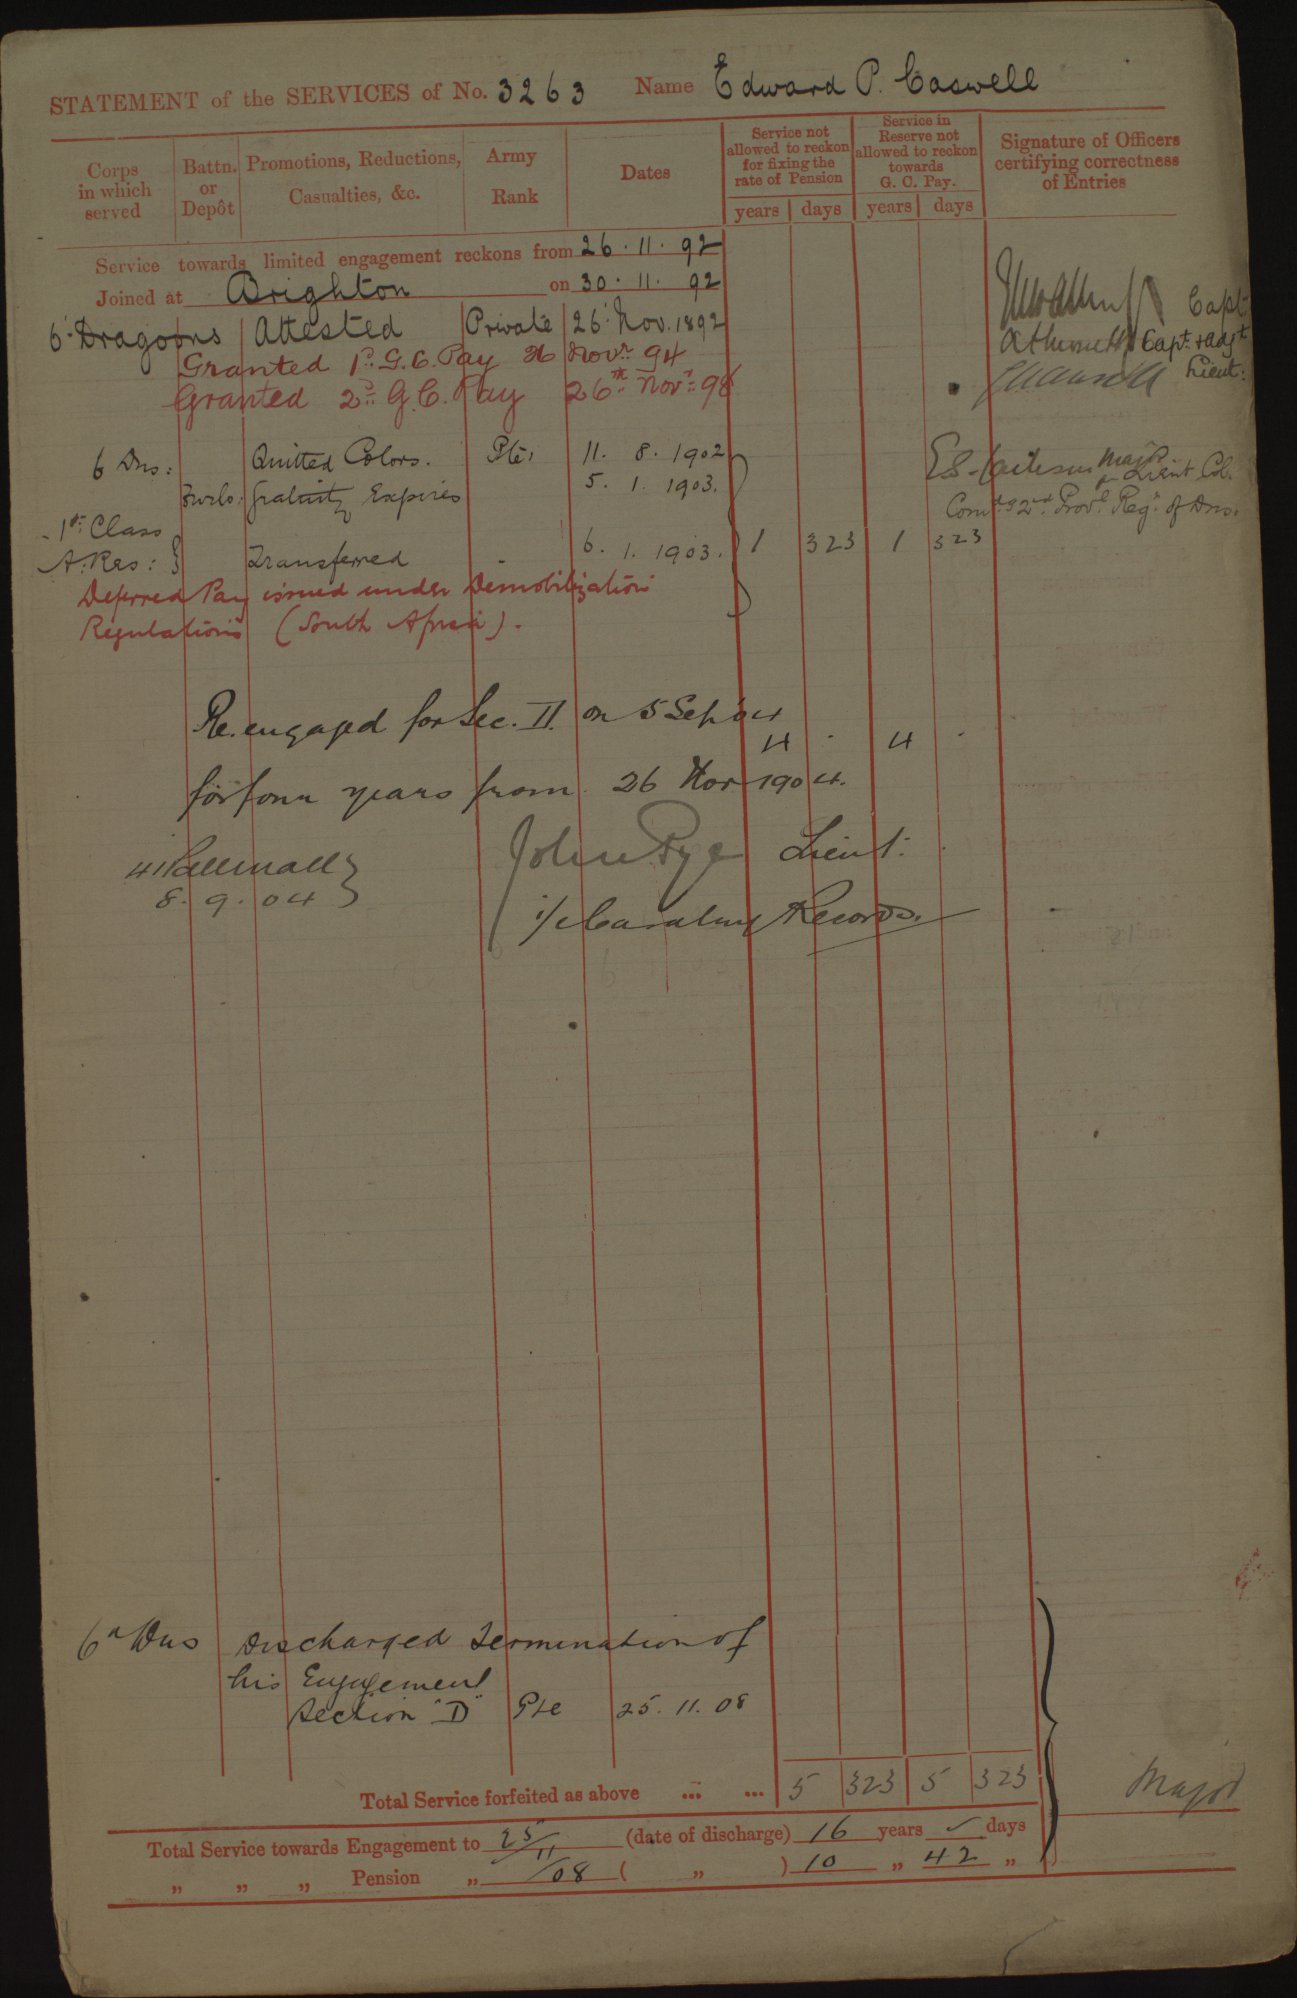 STATEMENT of the SERVICES of No. 3263 Name Edward P. Caswell
Corps in which served
Battn. or Depôt
Promotions, Reductions, Casualties, &c.
Army Rank
Dates
Service not allowed to reckon for fixing the rate of Pension
Service in Reserve not allowed to reckon towards G. C. Pay.
Signature of Officers certifying correctness of Entries
years days years days
Service towards limited engagement reckons from 26 . 11 . 92
Joined at Brighton on 30 . 11 . 92
Capt.
6' Dragoons Attested Private 26' Nov. 1892
Capt. & Adjt
Granted 1st G. C. Pay 26 Novr 94
Lieut:
Granted 2nd G. C. Pay 26th Novr 98
6 Dns: Quitted Colors. Pte, 11. 8. 1902
Major
for Lieut Col.
Furlo: Gratuity Expires 5. 1. 1903.
Comdg 2nd Provl Regt of Dns.
1st Class
A. Res: } Transferred 6. 1. 1903. 1 323 1 323
Deferred Pay issued under Demobilization
Regulations (South Africa).
Re.engaged for Sec. D on 5 Sep '04
4 . 4 .
for four years from 26 Nov 1904.
John Pye Lieut.
8. 9. 04
i/c Cavalry Records.
6th Dns Discharged Termination of
his Engagement
Section "D" Pte 25. 11. 08
Total Service forfeited as above ... ... 5 323 5 323
Major
Total Service towards Engagement to 25/11 (date of discharge) 16 years ✓ days
„ „ „ Pension „ /08 ( „ ) 10 „ 42 „